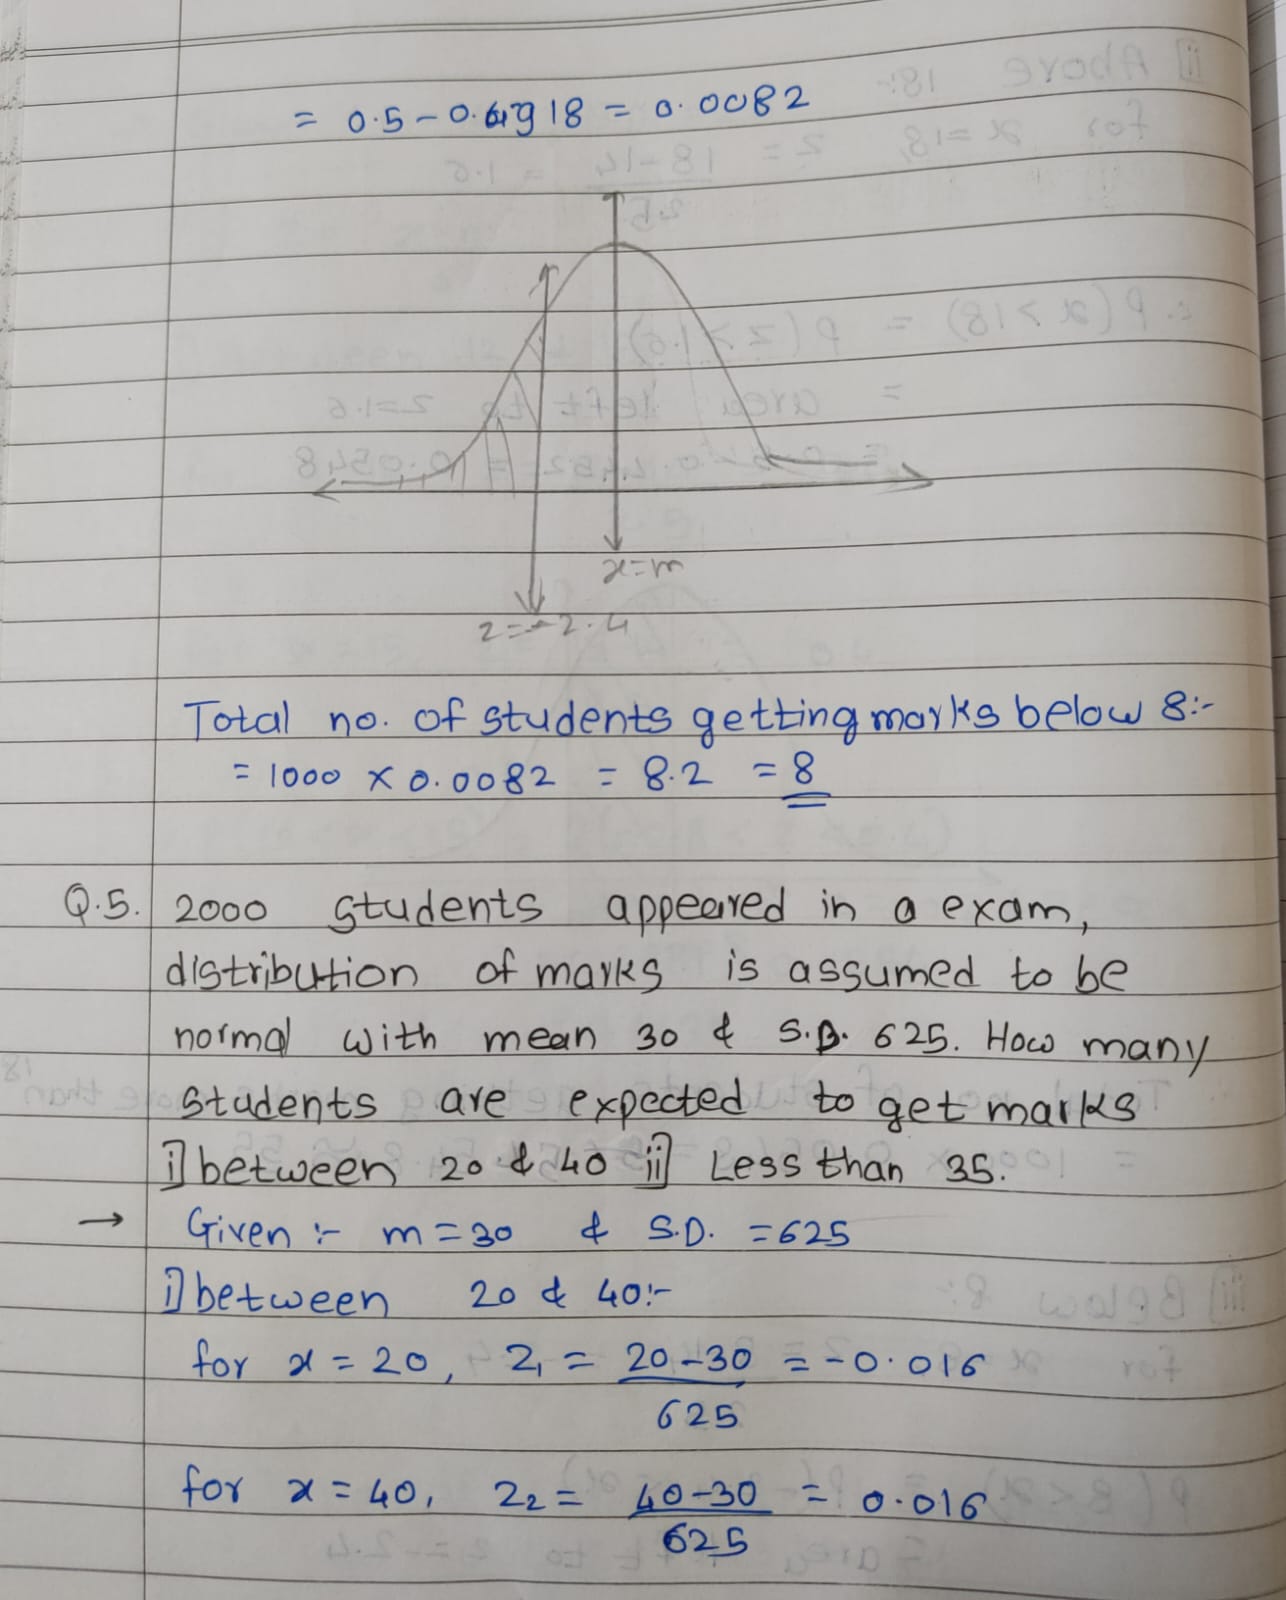 = 0.5 - 0.4918 = 0.0082
x=m
z=-2.4
Total no. of students getting marks below 8:-
= 1000 x 0.0082 = 8.2 = 8
Q.5. 2000 students appeared in a exam,
distribution of marks is assumed to be
normal with mean 30 & S.D. 625. How many
students are expected to get marks
i] between 20 & 40 ii] Less than 35.
→ Given :- m = 30 & S.D. = 625
i] between 20 & 40:-
for x = 20, z₁ = 20-30 = -0.016
625
for x = 40, z₂ = 40-30 = 0.016
625